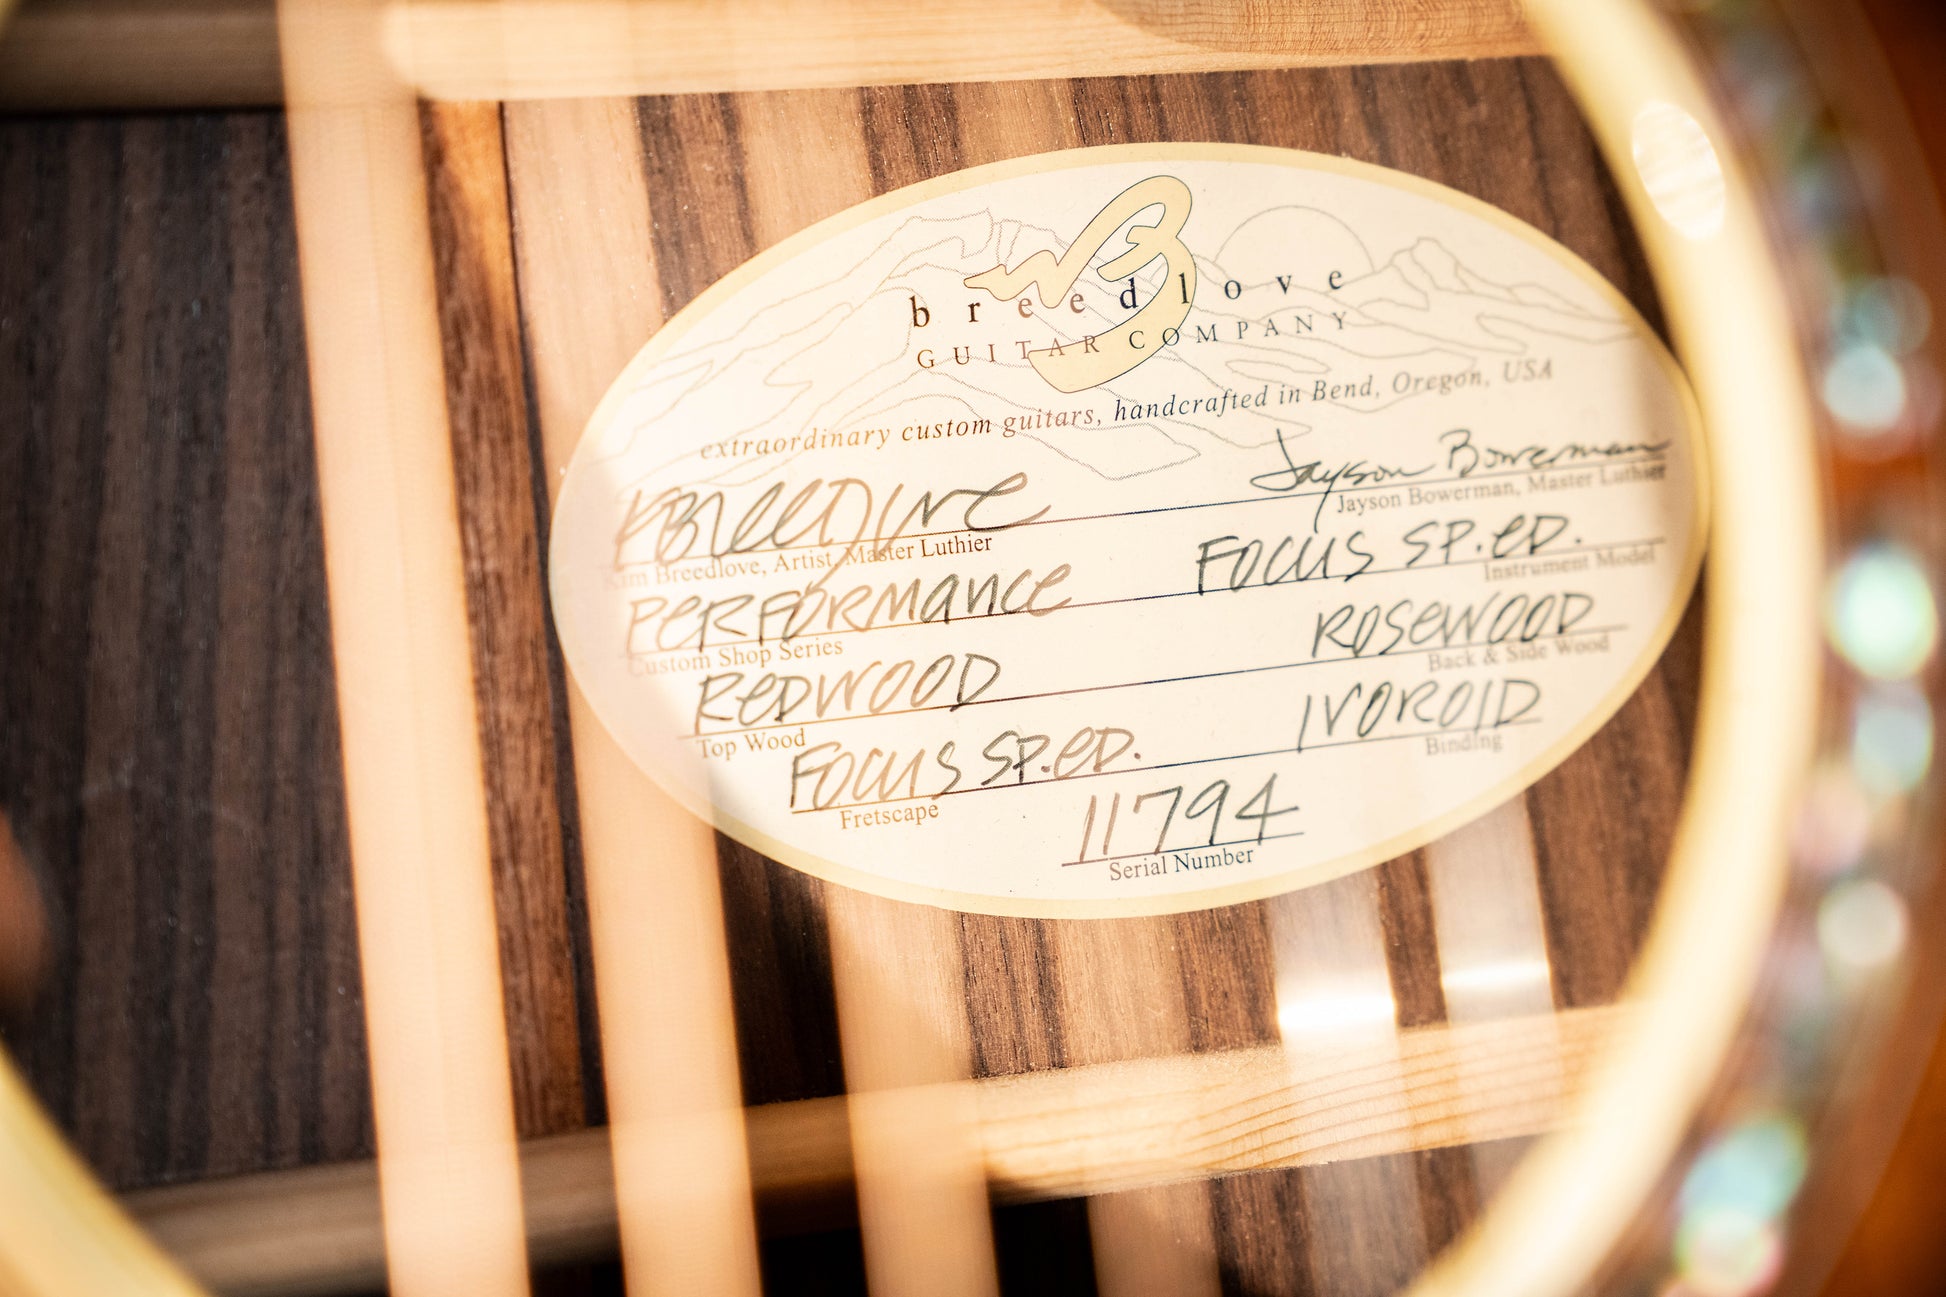 breedlove
GUITAR COMPANY
extraordinary custom guitars, handcrafted in Bend, Oregon, USA
KBreedlove Jayson Bowerman
Kim Breedlove, Artist, Master Luthier Jayson Bowerman, Master Luthier
PERFORMANCE FOCUS SP.ED.
Custom Shop Series Instrument Model
REDWOOD ROSEWOOD
Top Wood Back & Side Wood
FOCUS SP.ED. IVOROID
Fretscape Binding
11794
Serial Number